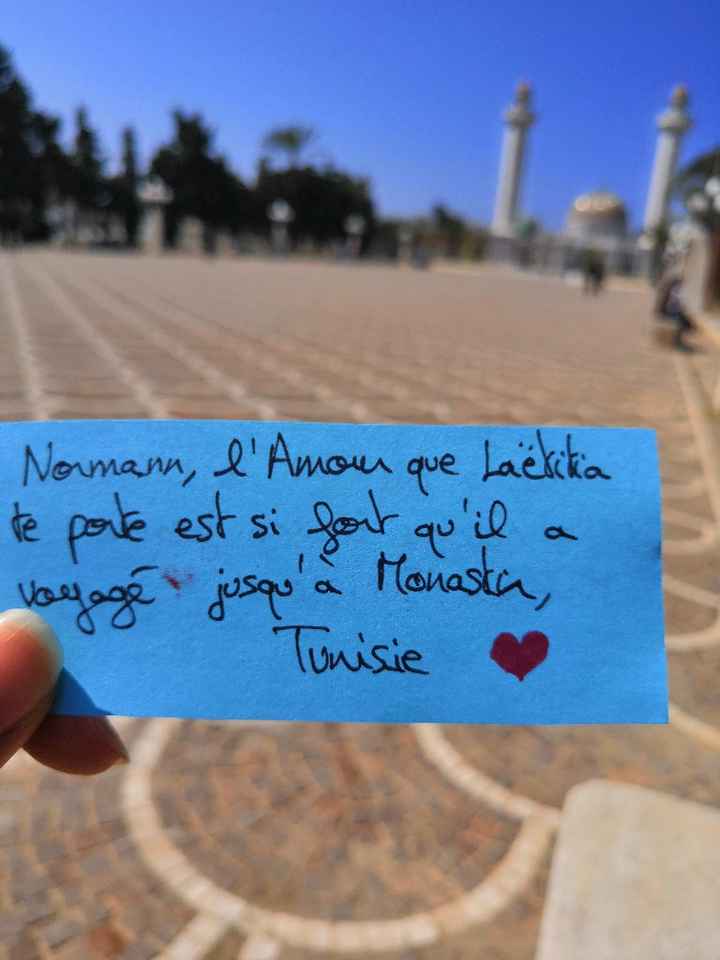 Normann, l'Amour que Laëtitia
te porte est si fort qu'il a
voyagé jusqu'à Monastir,
Tunisie